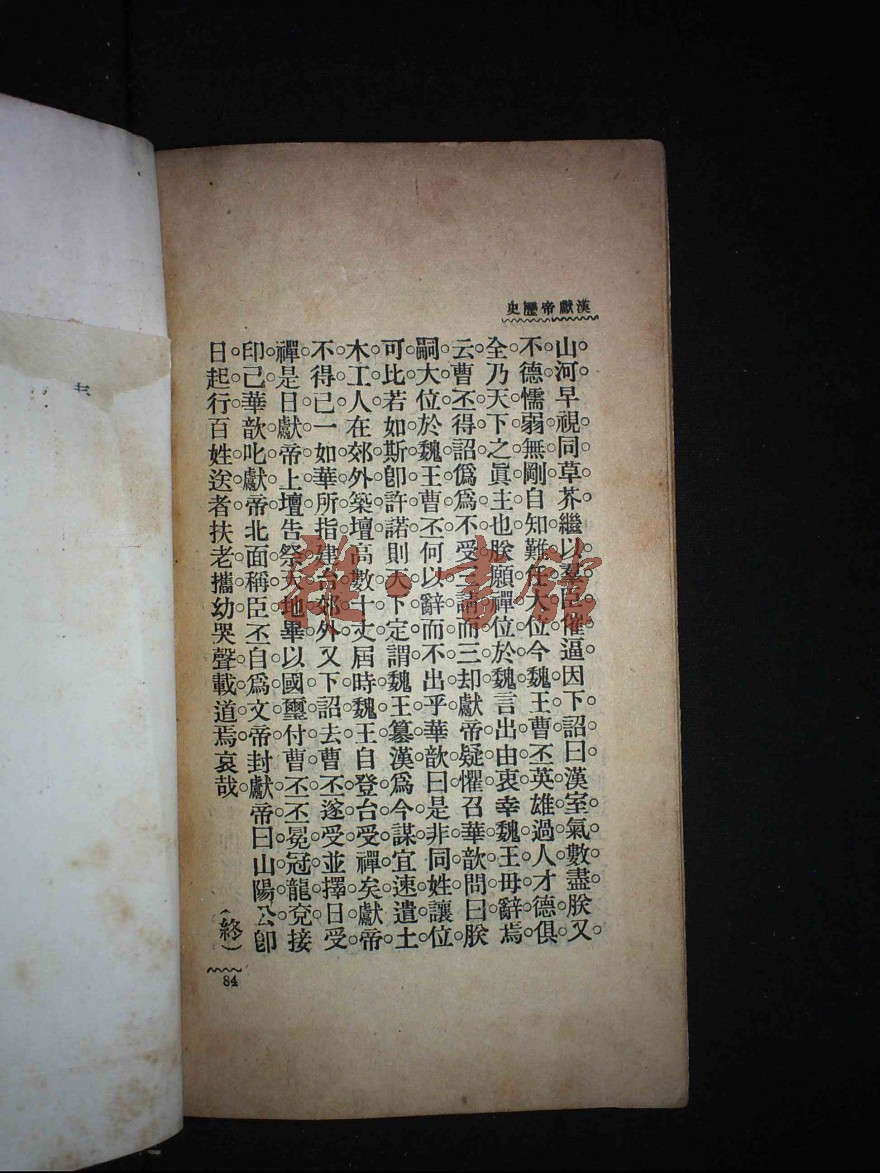 漢獻帝歷史
山河早視同草芥繼以羣臣催逼因下詔曰漢室氣數盡朕又
不德懦弱無剛自知難任大位今魏王曹丕英雄過人才德俱
全乃天下之眞主也朕願禪位於魏言出由衷幸魏王毋辭焉
云曹丕得詔僞爲不受三詔而三却獻帝疑懼召華歆問曰朕
嗣大位於魏王曹丕何以辭而不出乎華歆曰是非同姓讓位
可比若如斯卽許諾則天下定謂魏王篡漢爲今謀宜速遣土
木工人在郊外築壇高數十丈屆時魏王自登台受禪矣獻帝
不得已一如華所指建台郊外又下詔去曹丕遂受並擇日受
禪是日獻帝上壇告祭天地畢以國璽付曹丕丕冕冠龍兗接
印己華歆叱獻帝北面稱臣丕自爲文帝封獻帝曰山陽公卽
日起行百姓送者扶老攜幼哭聲載道焉哀哉
(終)
84
雜·書館